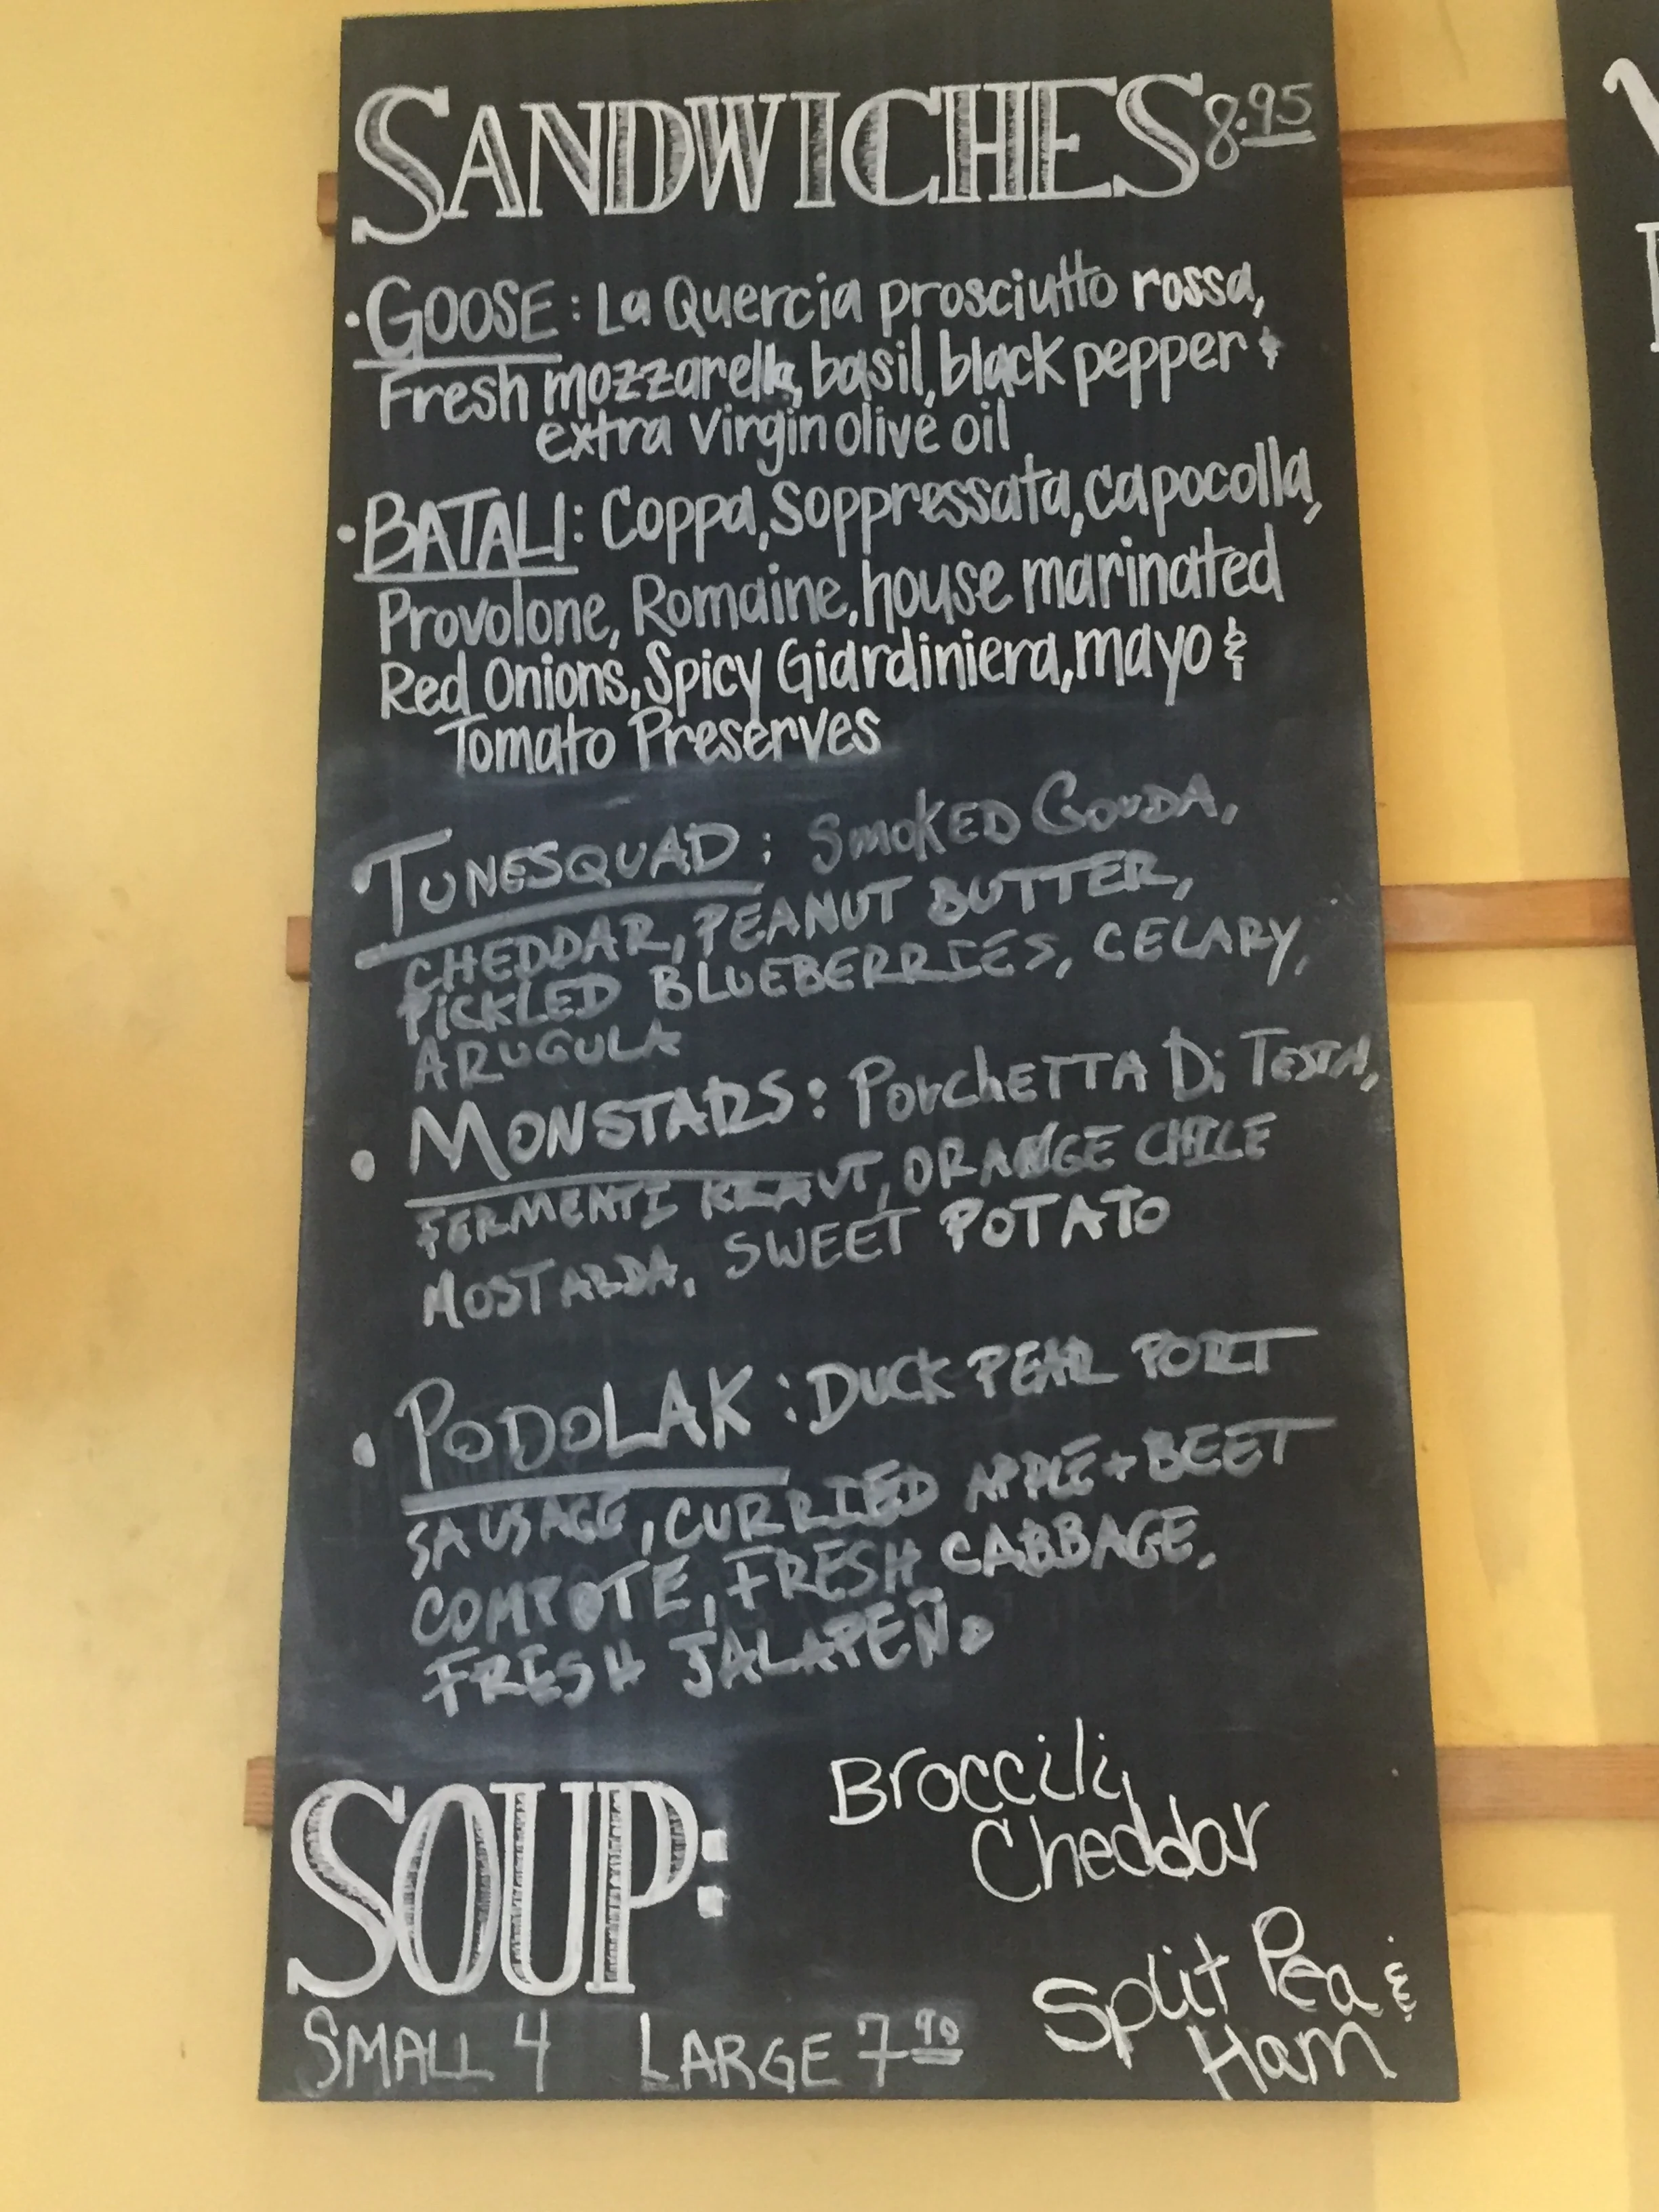 SANDWICHES 8.95
• GOOSE: La Quercia prosciutto rossa,
Fresh mozzarella, basil, black pepper &
extra Virgin olive oil
• BATALI: Coppa, Soppressata, capocolla,
Provolone, Romaine, house marinated
Red Onions, Spicy Giardiniera, mayo &
Tomato Preserves
• TUNESQUAD: SMOKED GOUDA,
CHEDDAR, PEANUT BUTTER,
PICKLED BLUEBERRIES, CELARY,
ARUGULA
• MONSTARS: PORCHETTA Di TESTA,
FERMENTI KRAUT, ORANGE CHILE
MOSTARDA, SWEET POTATO
• PODOLAK: DUCK PEAR PORT
SAUSAGE, CURRIED APPLE + BEET
COMPOTE, FRESH CABBAGE,
FRESH JALAPEÑO
SOUP:
Broccili
Cheddar
Split Pea &
Ham
SMALL 4 LARGE 7.90